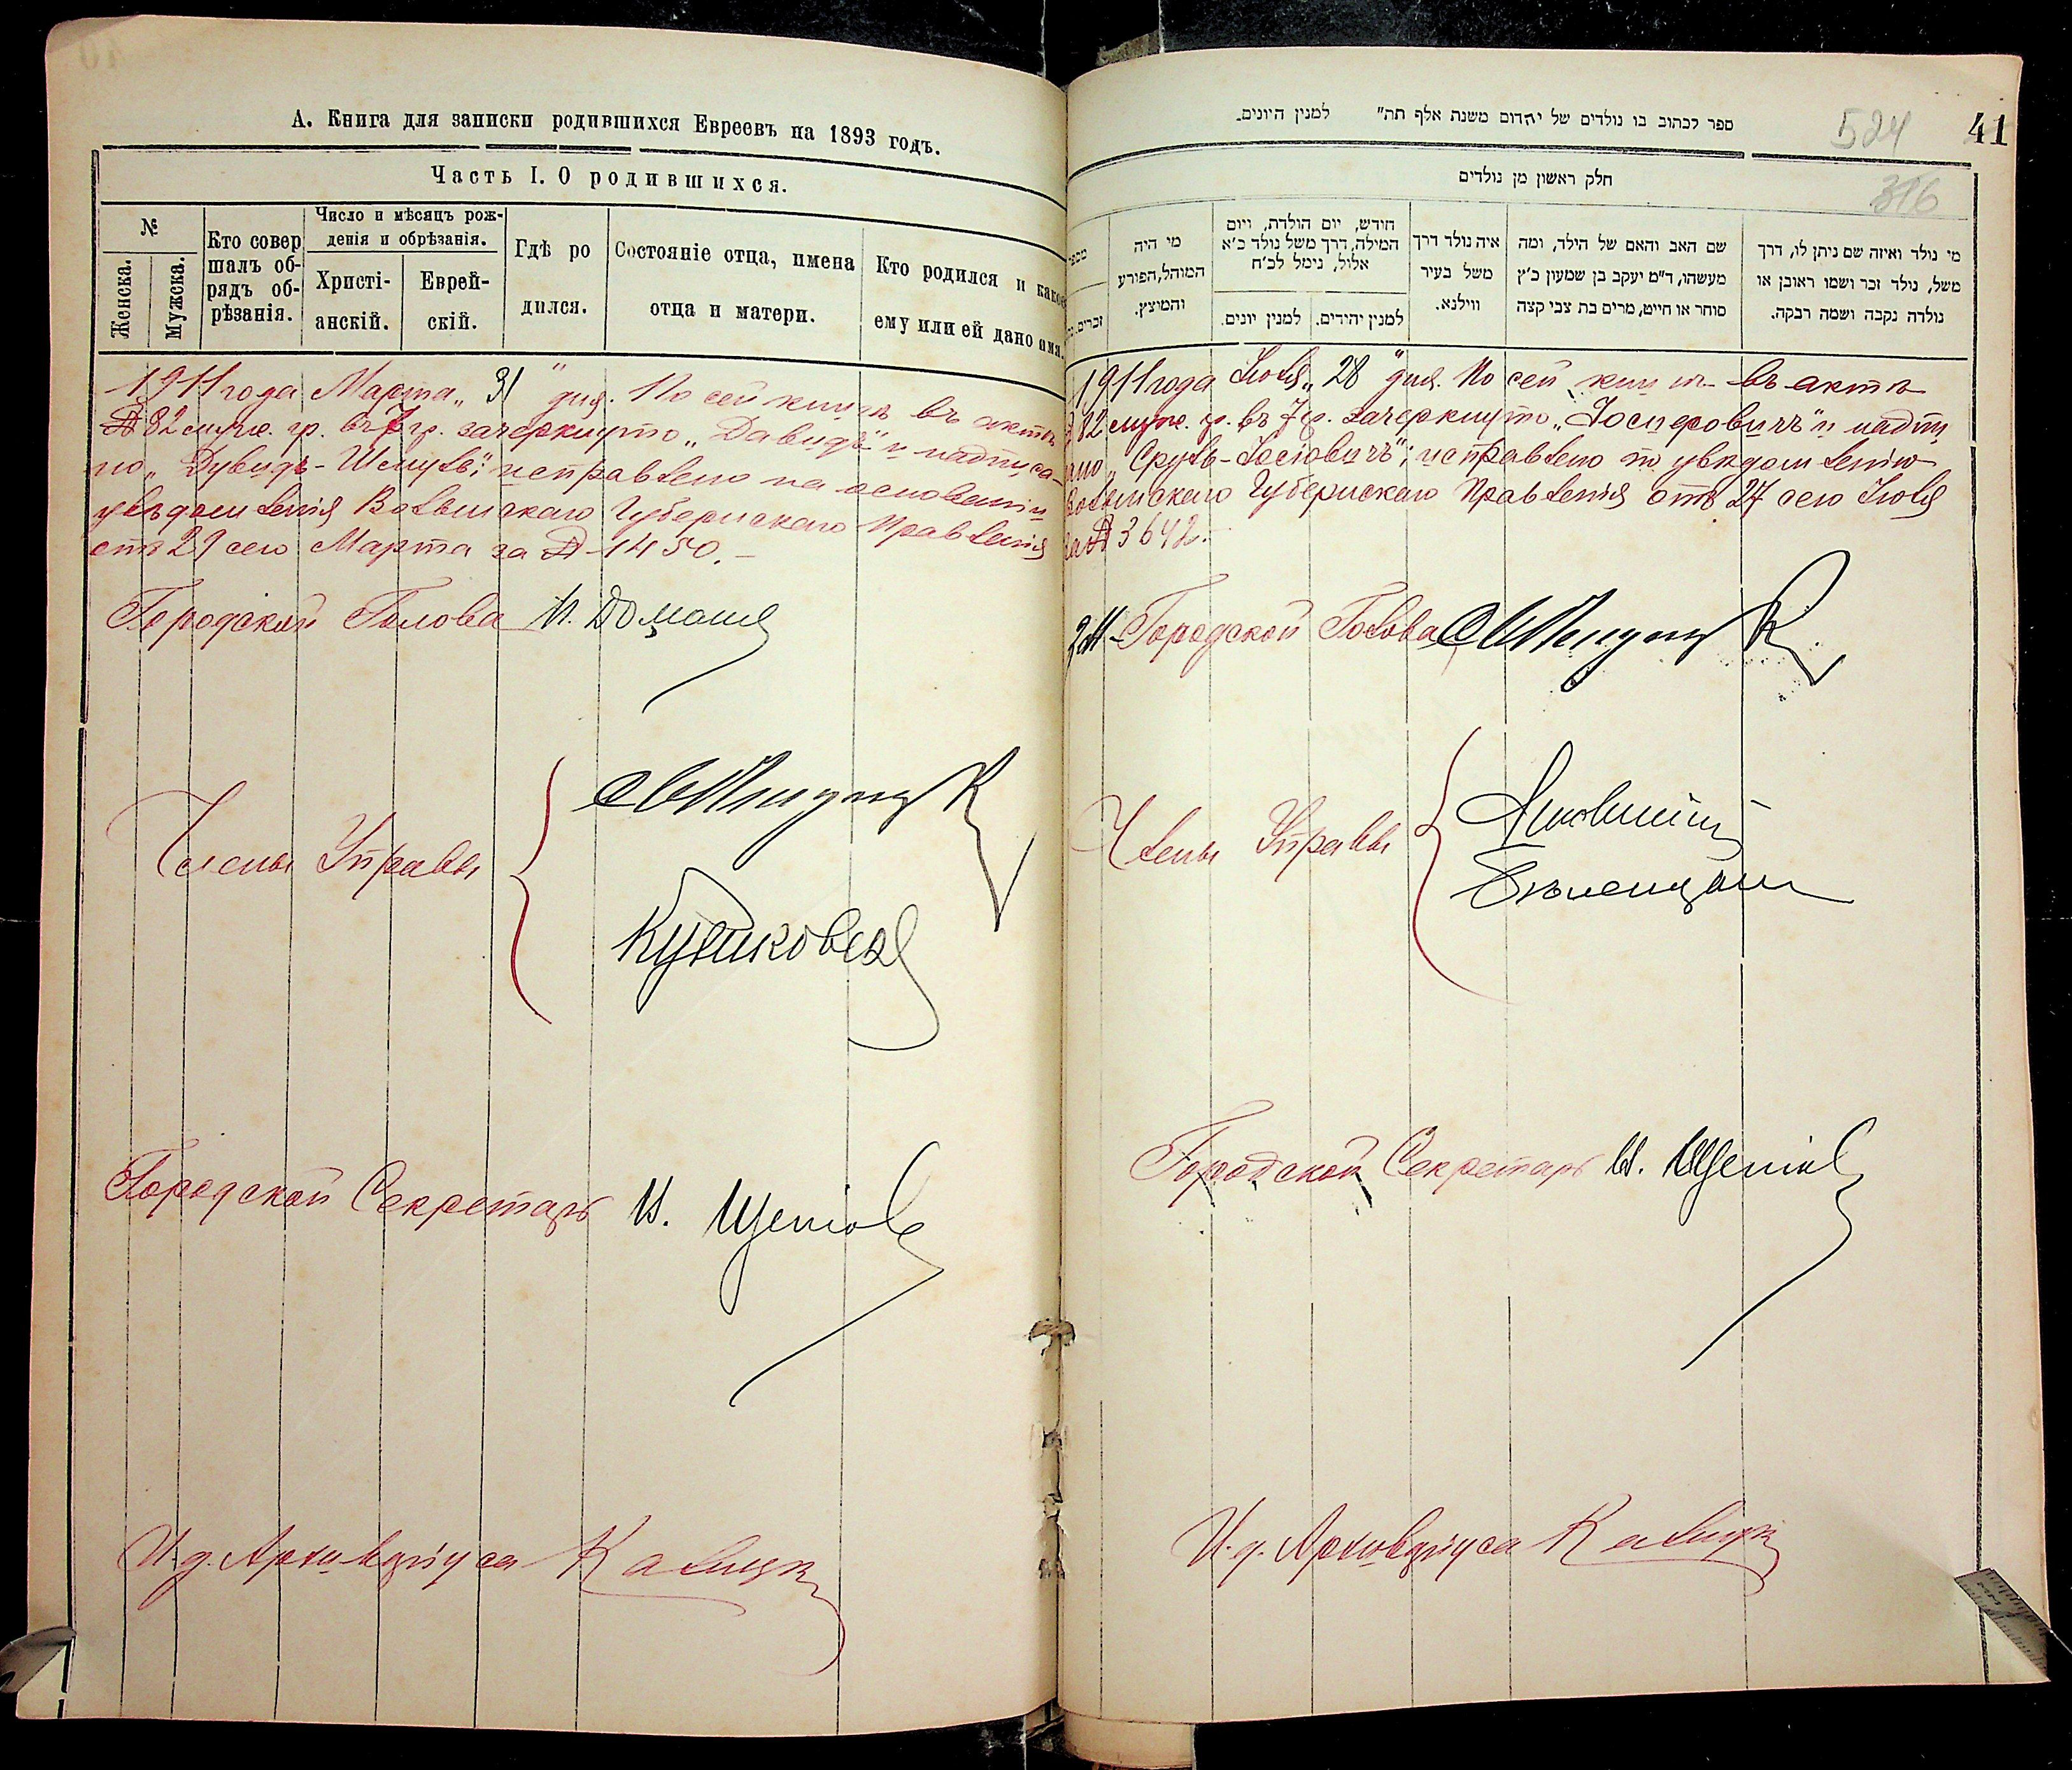 А. Книга для записки родившихся Евреевъ на 1893 годъ.
Часть I. О родившихся.
№
Женска.
Мужска.
Кто совер
шалъ об-
рядъ об-
рѣзанія.
Число и мѣсяцъ рож-
денія и обрѣзанія.
Христі-
анскій.
Еврей-
скій.
Гдѣ ро
дился.
Состояніе отца, имена
отца и матери.
Кто родился и какое
ему или ей дано имя.
1911 года Марта „31" дня. По сей книгѣ въ актѣ
№ 82 муж. гр. въ 7 гр. зачеркнуто „Давидъ" и надписа-
но „Дувидъ-Шмуль"; исправлено на основаніи
увѣдомленія Волынскаго Губернскаго Правленія
отъ 29 сего Марта за № 1450.-
Городской Голова
Члены Управы
Городской Секретарь
И. д. Архиваріуса
ספר לכתוב בו נולדים של יהדום משנת אלף תת" למנין היונים.
524
41
חלק ראשון מן נולדים
316
מספ
זכרים.
מי היה
המוהל,הפורע
והמוצץ.
חודש, יום הולדת, ויום
המילה, דרך משל נולד כ"א
אלול, נימל לכ"ח
למנין יונים.
למנין יהידים.
איה נולד דרך
משל בעיר
ווילנא.
שם האב והאם של הילד, ומה
מעשהו, ד"מ יעקב בן שמעון כ"ץ
סוחר או חייט, מרים בת צבי קצה
מי נולד ואיזה שם ניתן לו, דרך
משל, נולד זכר ושמו ראובן או
נולדה נקבה ושמה רבקה.
1911 года Іюля „28" дня. По сей книгѣ въ актѣ
№ 82 муж. гр. въ 7 гр. зачеркнуто „Іосифовичъ" и надпи
сано „Сруль-Іосіовичъ"; исправлено по увѣдомленію
Волынскаго Губернскаго Правленія отъ 27 сего Іюля
за № 3642.-
Городской Голова
Члены Управы
Городской Секретарь
И. д. Архиваріуса